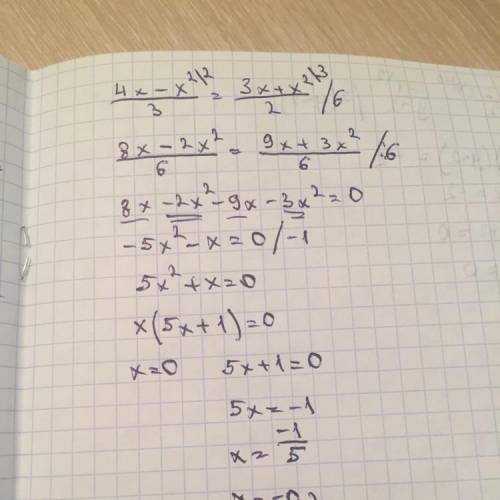 (4x - x²)/3 \2 = (3x + x²)/2 \3 /6
(8x - 2x²)/6 = (9x + 3x²)/6 /:6
8x - 2x² - 9x - 3x² = 0
-5x² - x = 0 / -1
5x² + x = 0
x(5x + 1) = 0
x = 0 5x + 1 = 0
5x = -1
x = -1/5